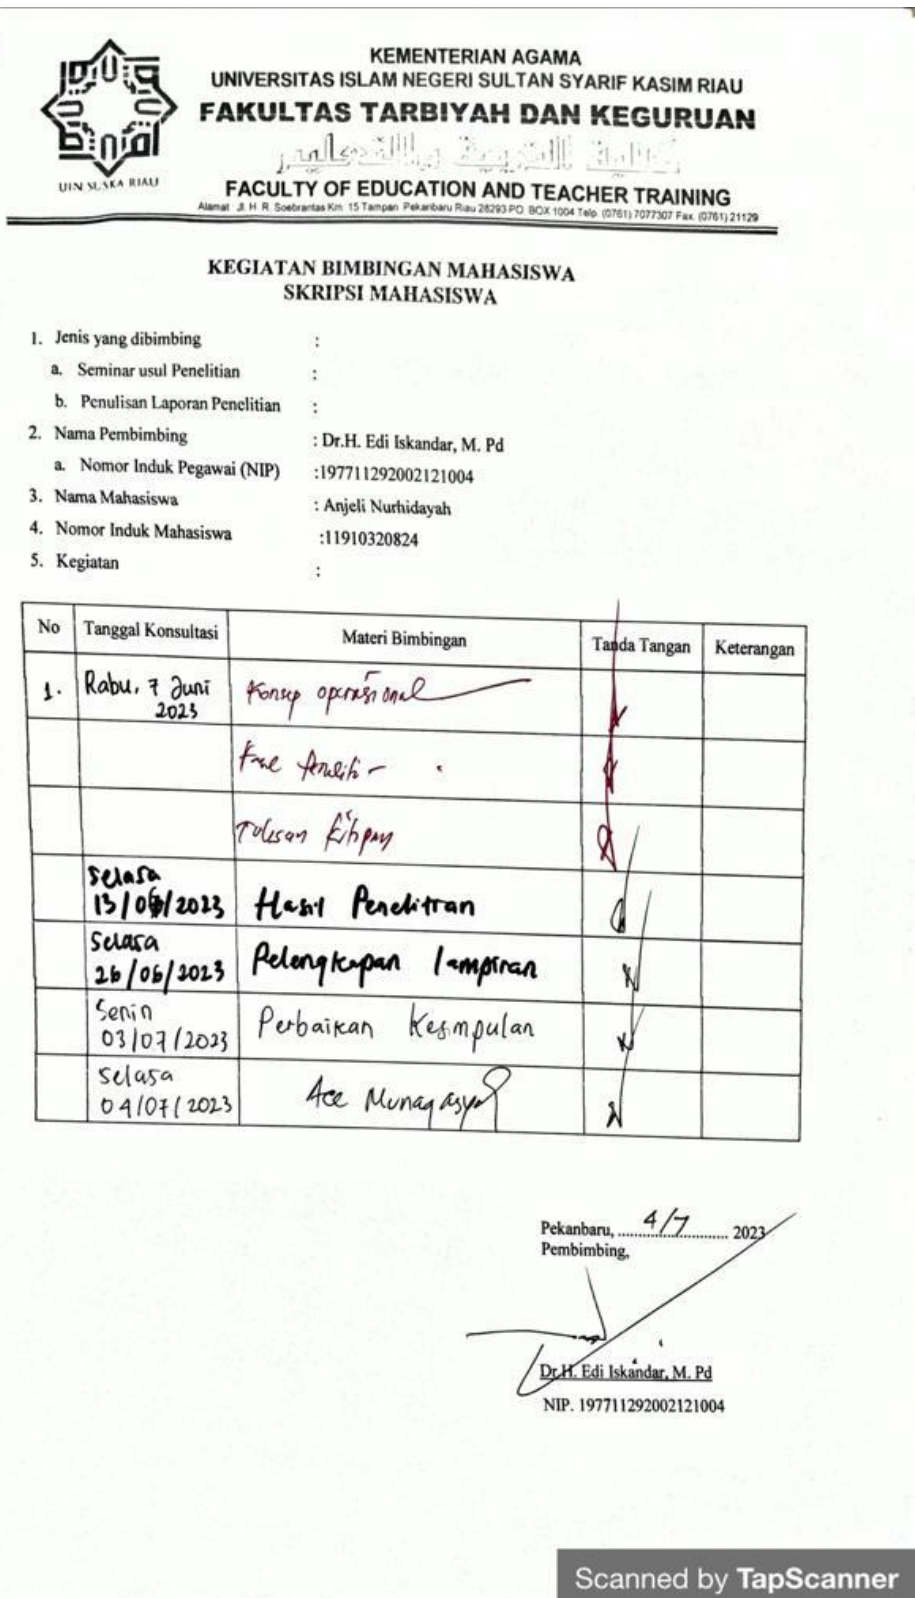 KEMENTERIAN AGAMA
UNIVERSITAS ISLAM NEGERI SULTAN SYARIF KASIM RIAU
FAKULTAS TARBIYAH DAN KEGURUAN
كلية التربية والتعليم
UIN SUSKA RIAU
FACULTY OF EDUCATION AND TEACHER TRAINING
Alamat : Jl. H. R. Soebrantas Km. 15 Tampan Pekanbaru Riau 28293 PO. BOX 1004 Telp. (0761) 7077307 Fax. (0761) 21129
KEGIATAN BIMBINGAN MAHASISWA
SKRIPSI MAHASISWA
1. Jenis yang dibimbing :
a. Seminar usul Penelitian :
b. Penulisan Laporan Penelitian :
2. Nama Pembimbing : Dr.H. Edi Iskandar, M. Pd
a. Nomor Induk Pegawai (NIP) :197711292002121004
3. Nama Mahasiswa : Anjeli Nurhidayah
4. Nomor Induk Mahasiswa :11910320824
5. Kegiatan :
No Tanggal Konsultasi Materi Bimbingan Tanda Tangan Keterangan
1. Rabu, 7 Juni 2023 Konsep operasional
Selasa 13/06/2023 Hasil Penelitian
Selasa 26/06/2023 Pelengkapan lampiran
Senin 03/07/2023 Perbaikan Kesimpulan
Selasa 04/07/2023 Acc Munaqasyah
Pekanbaru, 4/7 2023
Pembimbing,
Dr.H. Edi Iskandar, M. Pd
NIP. 197711292002121004
Scanned by TapScanner